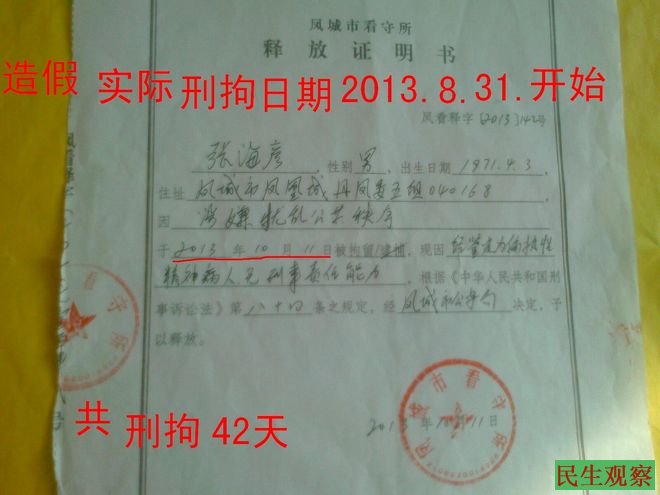 凤城市看守所
释放证明书
造假 实际刑拘日期2013.8.31.开始
凤看释字[2013]142号
张海彦,性别男,出生日期1971.4.3
住址凤城市凤凰城丹凤委五组040168
因涉嫌扰乱公共秩序
于2013年10月11日被拘留/逮捕,现因经鉴定为偏执性
精神病人无刑事责任能力,根据《中华人民共和国刑
事诉讼法》第八十四条之规定,经凤城市公安局决定,予
以释放。
凤城市看守所
2013年10月11日
共刑拘42天
凤看释字
看守所
号
民生观察